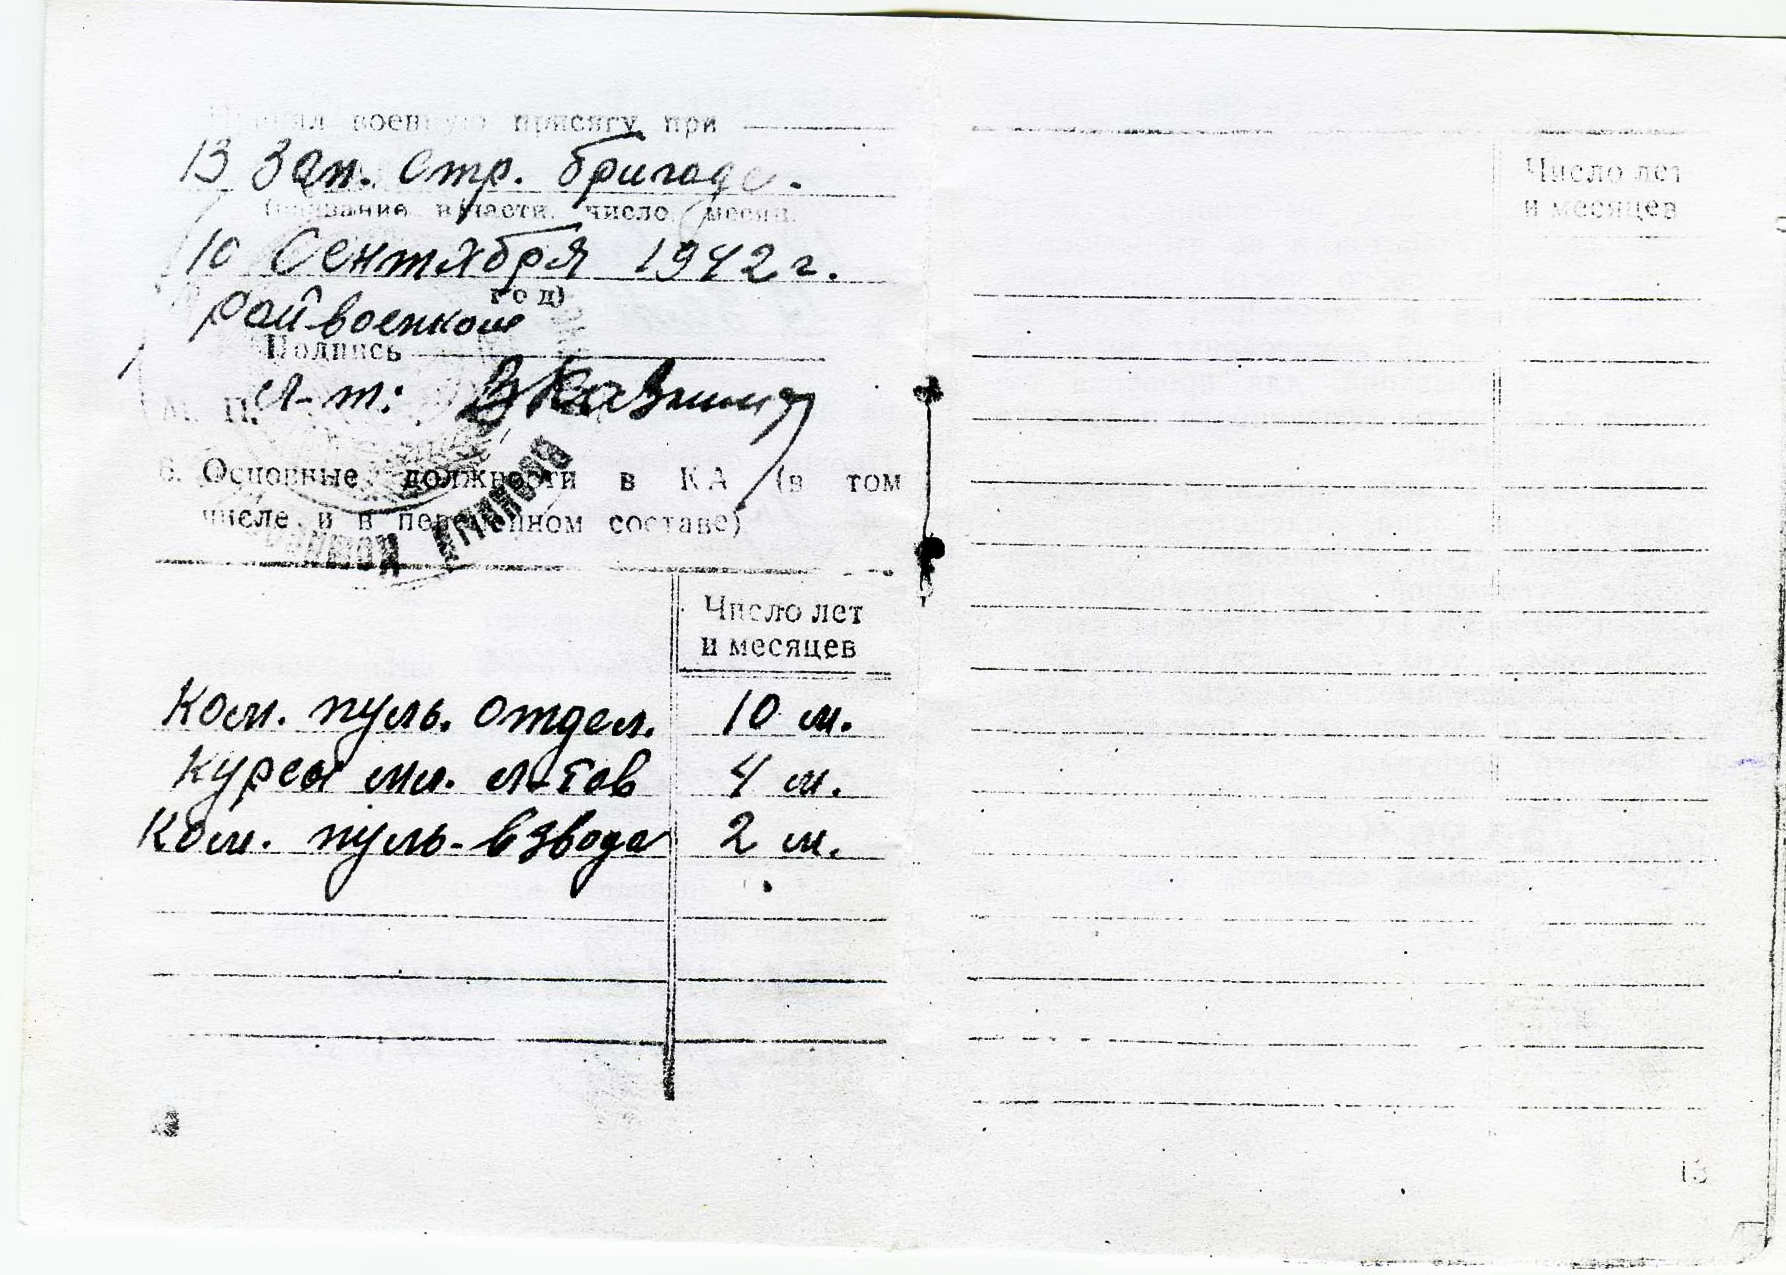 Принял военную присягу при
13 Зап. Стр. бригаде.
(название в/части, число, месяц,
10 Сентября 1942 г.
год)
райвоенком
Подпись
л-т:
М. П.
6. Основные должности в КА (в том
числе и в переменном составе)
Число лет
и месяцев
Ком. пуль. отдел. 10 м.
Курсы мл. л-тов 4 м.
Ком. пуль-взвода 2 м.
Число лет
и месяцев
13